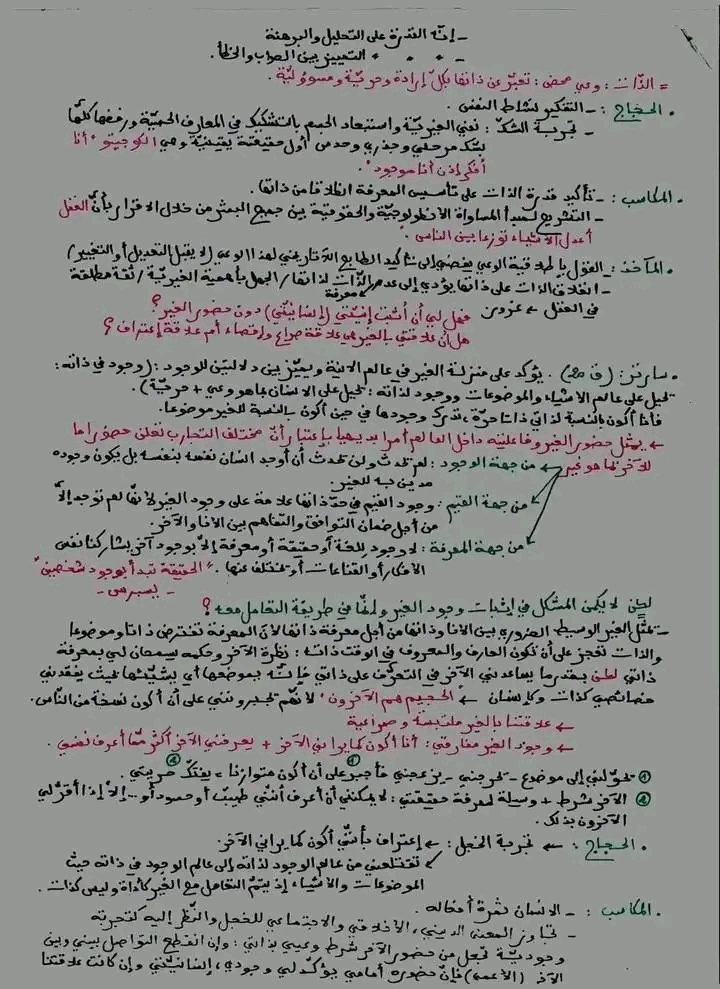 - إنّه القدرة على التحليل والبرهنة
- " " " التمييز بين الصواب والخطأ.
= الذّات: وعي محض: تعبّر عن ذاتها بكلّ إرادة وحريّة ومسؤوليّة.
• الحجاج: - التفكير نشاط النفس.
- تجربة الشكّ: نفي الغيريّة واستبعاد الجسم بالتشكيك في المعارف الحسيّة ورفضها كلّها
بشكّ مرحلي وجذري وحدس أول حقيقة يقينيّة وهي الكوجيتو "أنا
أفكر إذن أنا موجود".
• المكاسب: - تأكيد قدرة الذات على تأسيس المعرفة انطلاقا من ذاتها.
- التشريع لمبدأ المساواة الأنطولوجيّة والحقوقية بين جميع البشر من خلال الإقرار بأنّ العقل
أعدل الأشياء توزعا بين الناس".
• المآخذ: - القول بإطلاقية الوعي يفضي إلى تأكيد الطابع اللاّتاريخي لهذا الوعي (لا يقبل التعديل أو التغيير)
- انغلاق الذات على ذاتها يؤدي إلى عدم معرفة الذّات لذاتها / الجهل بأهمية الغيريّة / ثقة مطلقة
في العقل ← غرور
فهل لي أن أثبت إنيّتي (إنسانيّتي) دون حضور الغير؟
هل أن علاقتي بالغير هي علاقة صراع وإقصاء أم علاقة إعتراف؟
• سارتر: يؤكد على منزلة الغير في عالم الانية ويميّز بين دلالتين للوجود: (وجود في ذاته:
تحيل على عالم الأشياء والموضوعات ووجود لذاته: تحيل على الانسان بما هو وعي + حريّة).
فأنا أكون بالنسبة لذاتي ذاتا حرّة، تدرك وجودها في حين أكون بالنسبة للغير موضوعا.
← يمثل حضور الغير وفاعليته داخل العالم أمرا بديهيا بإعتبار أنّ مختلف التجارب تعلن حضورا ما
للآخر بما هو غير
← من جهة الوجود: لم تحدث ولن تحدث أن أوجد انسان نفسه بنفسه بل يكون وجوده
مدين به للغير.
من جهة القيم: وجود القيم في حدّ ذاتها علامة على وجود الغير لأنّها لم توجد إلاّ
من أجل ضمان التوافق والتفاهم بين الأنا والآخر.
من جهة المعرفة: لا وجود للغة أو حقيقة أو معرفة إلاّ بوجود آخر يشاركنا نفس
الأفكار أو القناعات أو يختلف عنها. "الحقيقة تبدأ بوجود شخصين"
- يسبرس -
لكن لا يكمن المشكل في إثبات وجود الغير وإنّما في طريقة التعامل معه؟
- يمثّل الغير الوسيط الضروري بين الأنا وذاتها من أجل معرفة ذاتها لأنّ المعرفة تفترض ذاتا وموضوعا
والذات تعجز على أن تكون العارف والمعروف في الوقت ذاته: نظرة الآخر وحكمه يسمحان لي بمعرفة
ذاتي لكن بقدر ما يساعدني الآخر في التعرّف على ذاتي فإنّه يموضعها أي يشيّئها بحيث يفقدني
خصائصي كذات وكإنسان ← "الجحيم هم الآخرون" لأنّهم يجبرونني على أن أكون نسخة من النّاس.
← علاقتنا بالغير ملتبسة وصراعية
← وجود الغير مفارقي: أنا أكون كما يراني الآخر + يعرفني الآخر أكثر ممّا أعرف نفسي.
① تحوّلني إلى موضوع - تحرجني - يزعجني فأجبر على أن أكون متوازنا = يفتكّ حريتي.
② الآخر شرط + وسيلة لمعرفة حقيقتي: لا يمكنني أن أعرف أنّني طيّب أو حسود أو... إلاّ إذا أقرّ لي
الآخرون بذلك.
• الحجاج: ← تجربة الخجل: ← إعتراف بأنّني أكون كما يراني الآخر.
← تقتلعني من عالم الوجود لذاته إلى عالم الوجود في ذاته حيث
الموضوعات والأشياء إذ يتمّ التعامل مع الغير كأداة وليس كذات.
• المكاسب: - الانسان ثمرة أفعاله.
- تجاوز المعنى الديني، الأخلاقي والاجتماعي للخجل والنّظر إليه كتجربة
وجوديّة تجعل من حضور الآخر شرط وعيي بذاتي: وإن انقطع التواصل بيني وبين
الآخر (الأعمى) فإنّ حضوره أمامي يؤكّد لي وجودي، إنسانيّتي وإن كانت علاقتنا